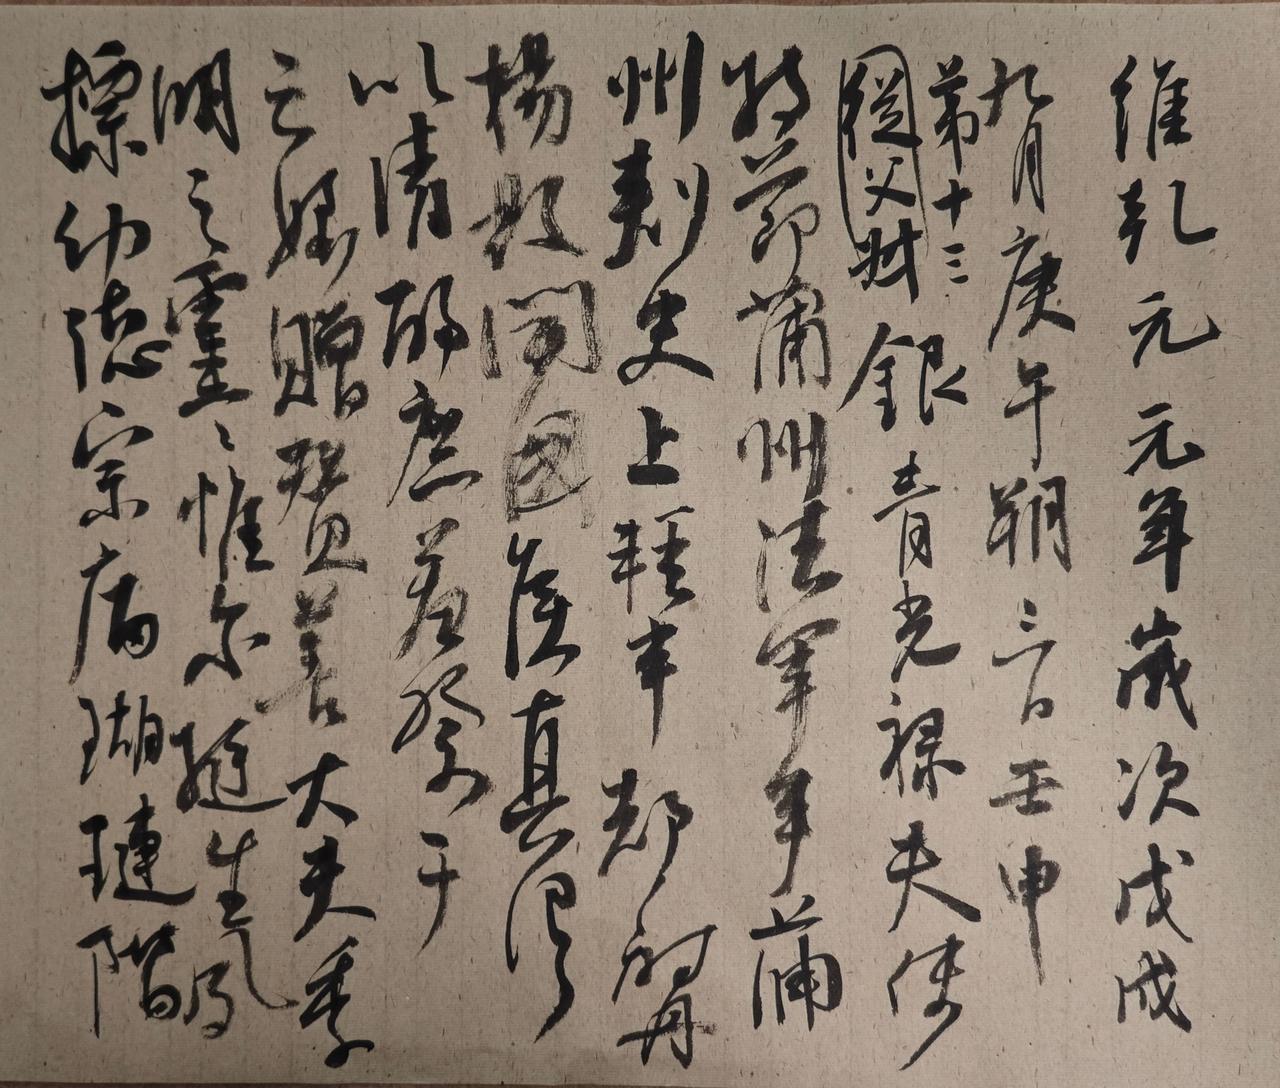 維乾元元年歲次戊戌
九月庚午朔三日壬申
第十三
從父叔銀青光祿夫使
持節蒲州諸軍事蒲
州刺史上輕車都尉丹
楊縣開國侯真卿
以清酌庶羞祭于
亡姪贈贊善大夫季
明之靈曰惟爾挺生夙
標幼德宗廟瑚璉階